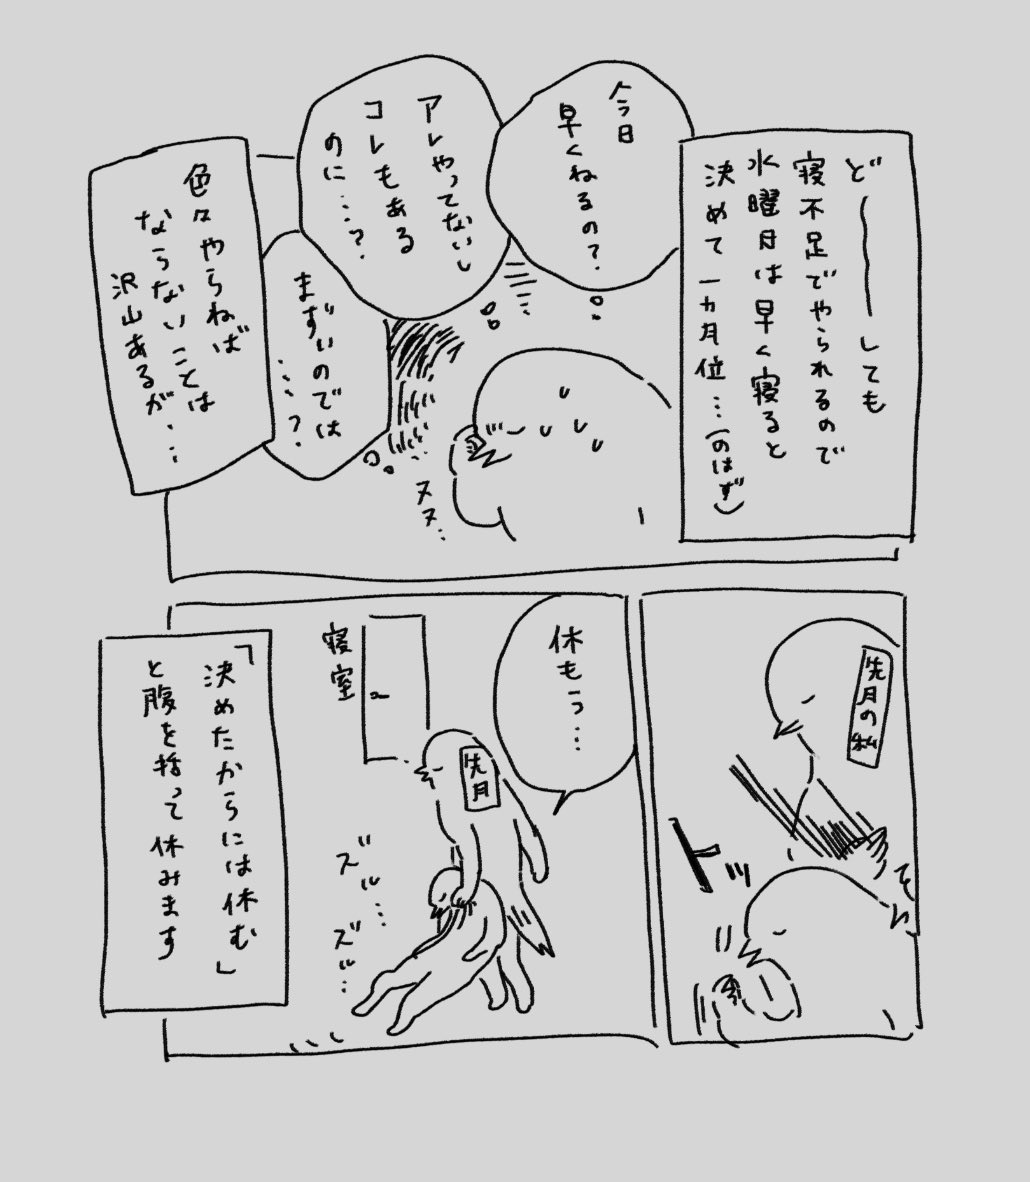 ど━━━しても
寝不足でやられるので
水曜日は早く寝ると
決めて一ヵ月位…(のはず)
今日
早くねるの?
アレやってないし
コレもある
のに…?
まずいのでは
…?
色々やらねば
ならないことは
沢山あるが…
ヌヌ…
先月の私
トッ
そ
休もう…
寝室
先月
ズル…
ズル…
「決めたからには休む」
と腹を括って休みます